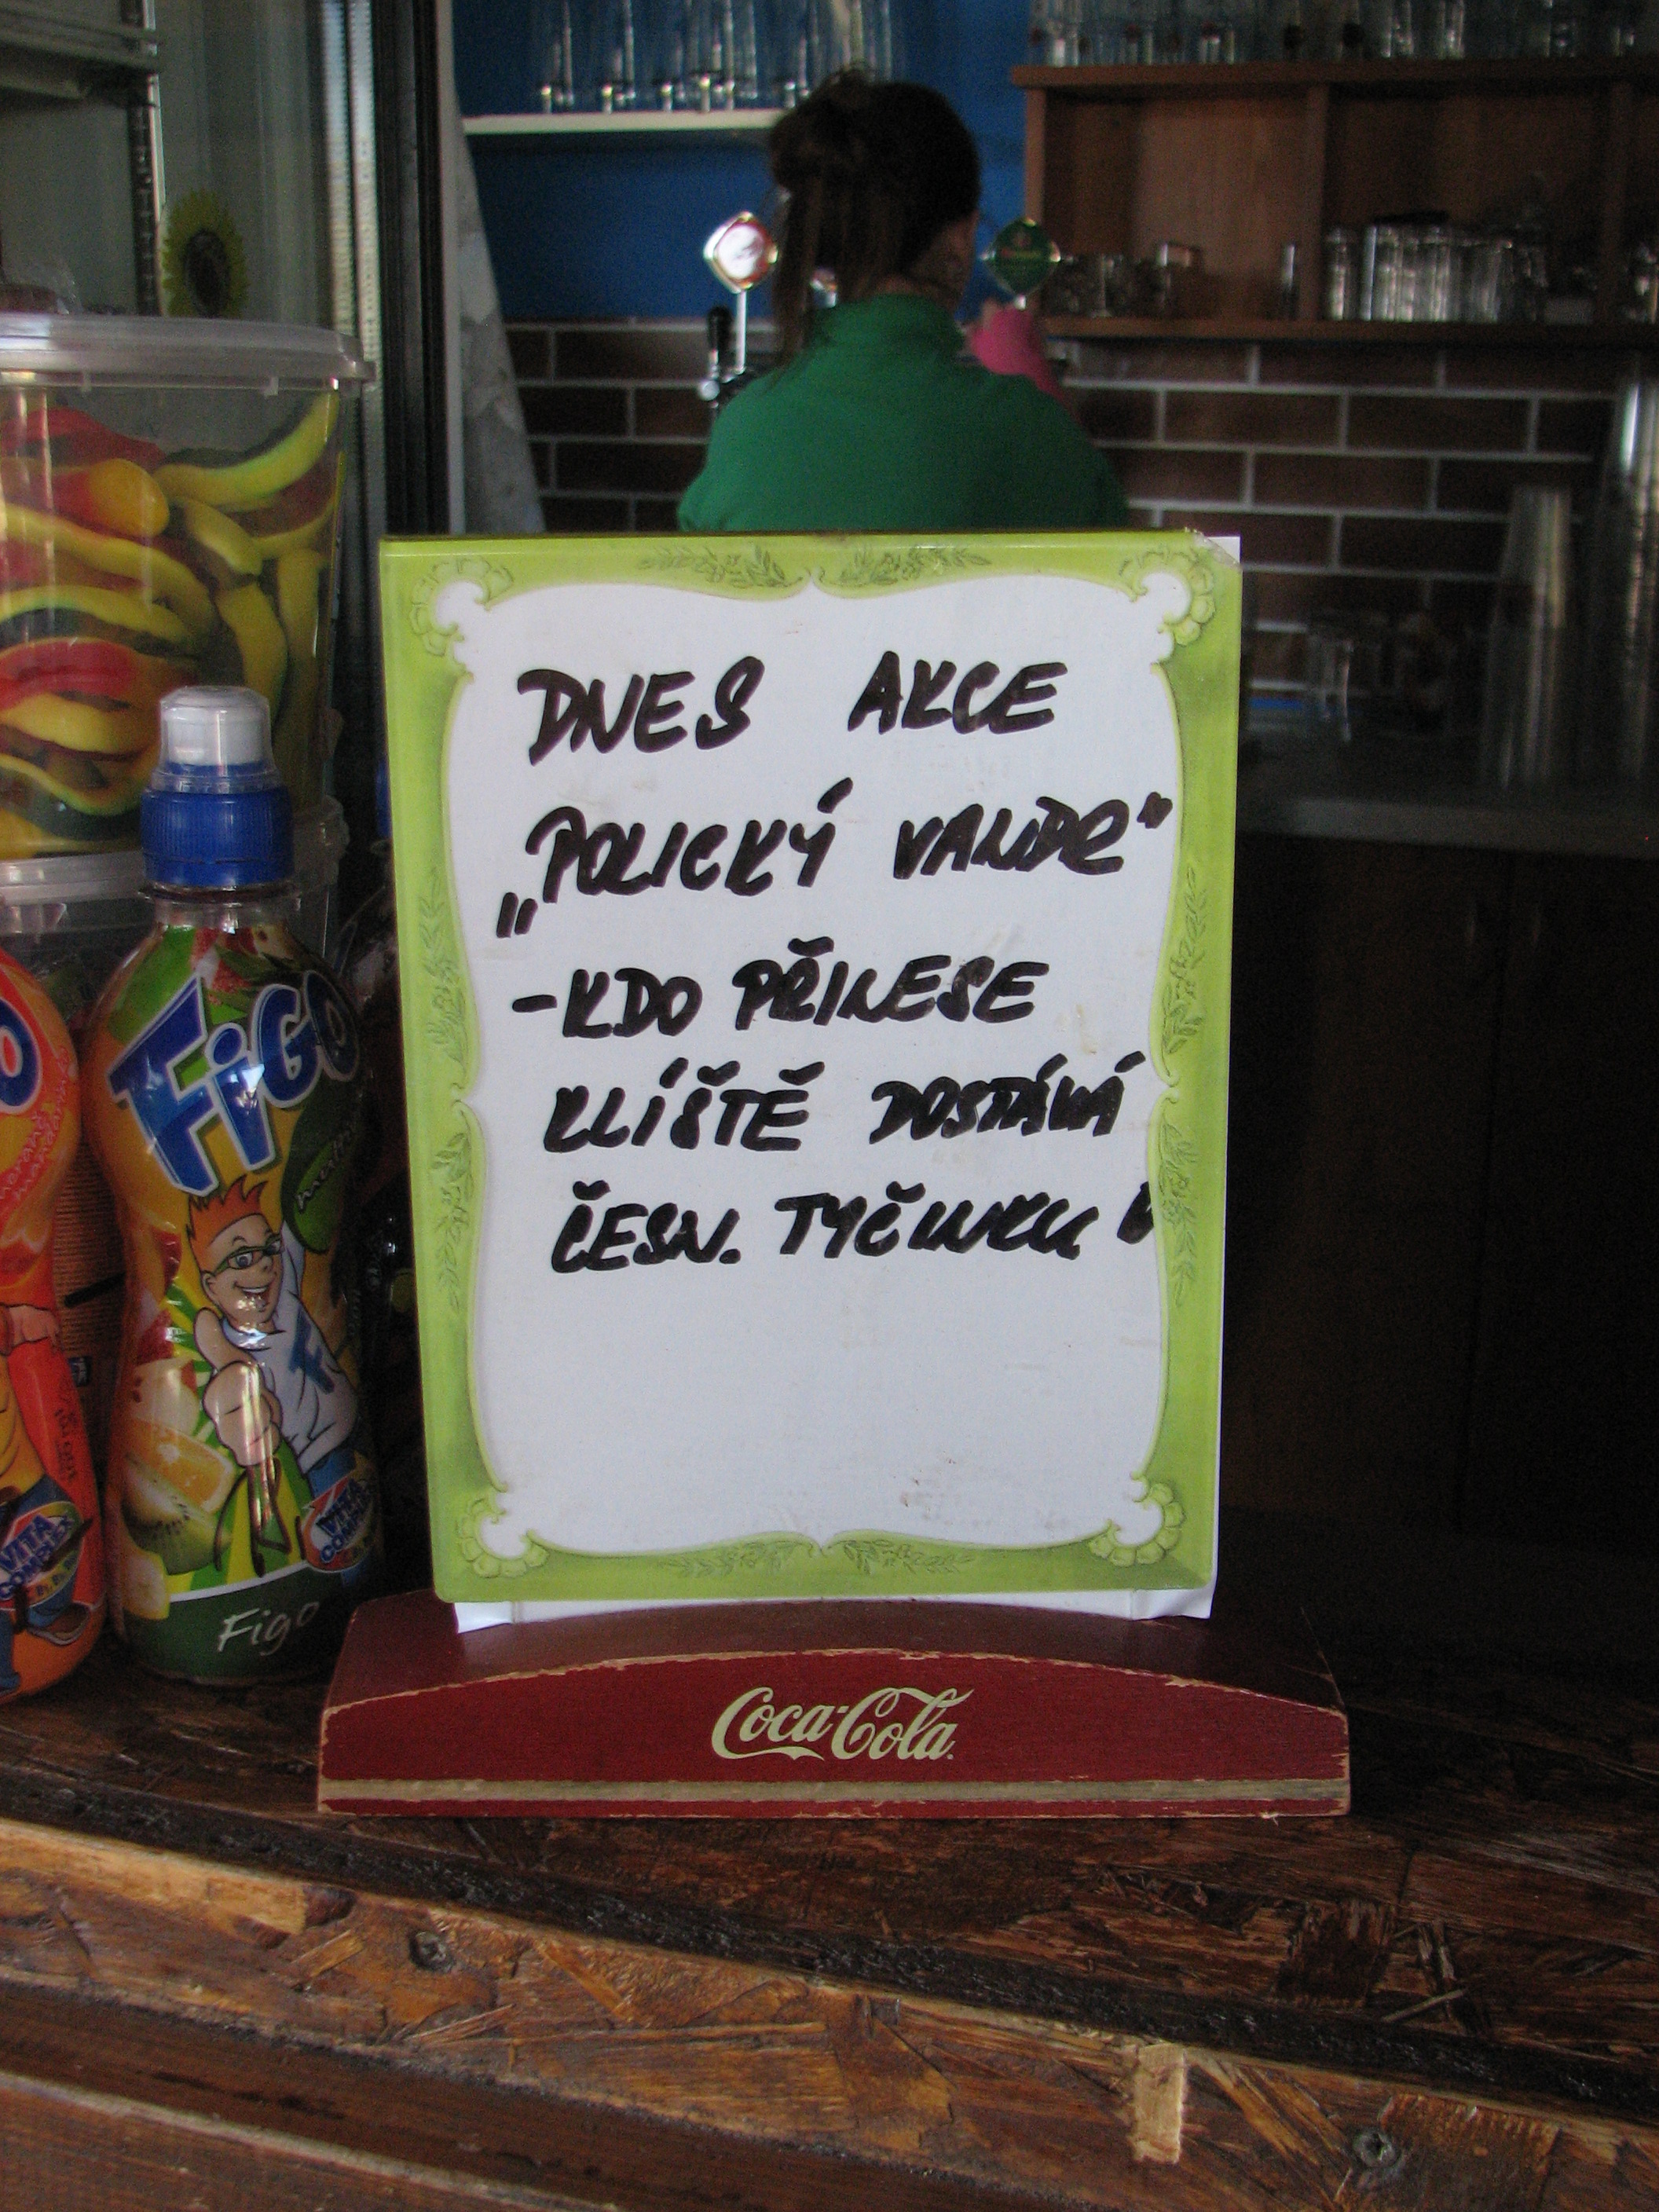 DNES AKCE
„POLICKÝ VANDR"
-KDO PŘINESE
KLÍŠTĚ DOSTÁVÁ
ČESN. TYČINKU
Coca-Cola
FiGO
multi
VITA COMPLEX
Figo
VITA COMPLEX